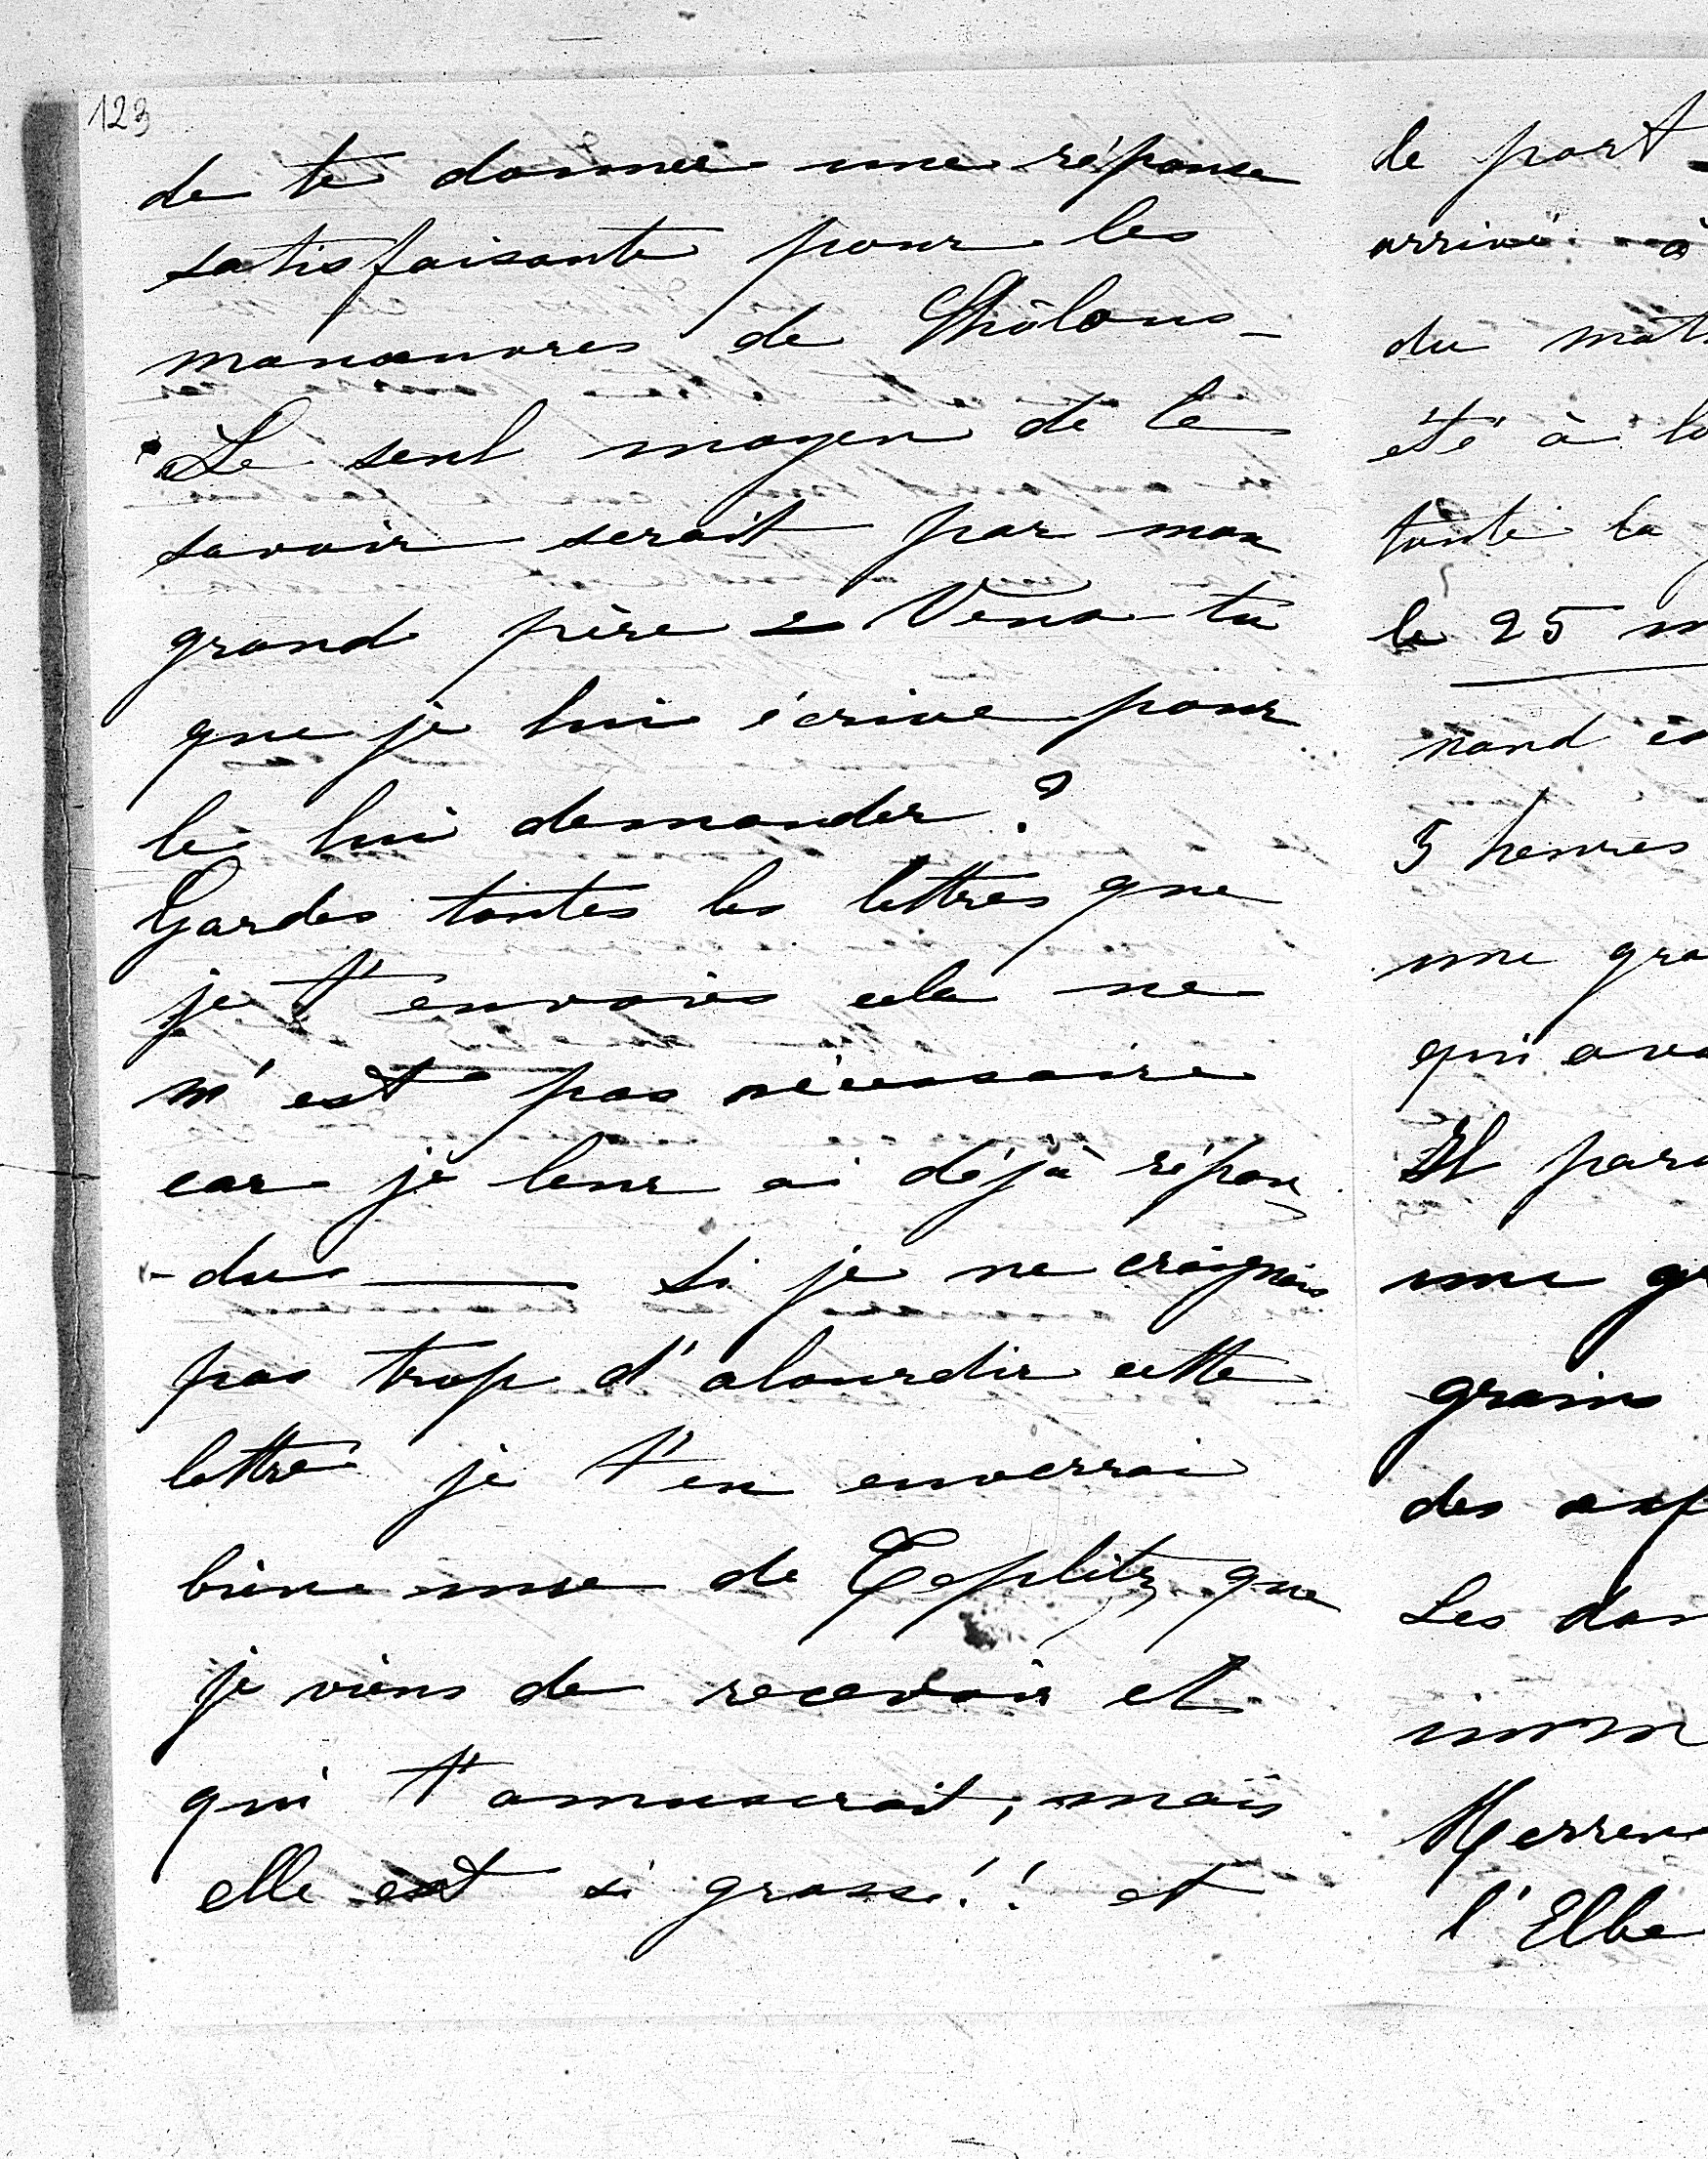 123
de te donner une réponse
satisfaisante pour les
manœuvres de Châlons -
Le seul moyen de le
savoir serait par mon
grand père - Veux-tu
que je lui écrive pour
le lui demander ?
Gardes toutes les lettres que
je t'envoies cela ne
m'est pas nécessaire
car je leur ai déjà répon
-du — Si je ne craignais
pas trop d'alourdir cette
lettre je t'en enverrai
bien une de Teplitz que
je viens de recevoir et
qui t'amuserait, mais
elle est si grosse ! ! et
de port
arrivé à
du mat
été à la
toute la
le 25 m
nand
5 heures
une gra
qui ava
Il para
une gr
grains
des
Les dom
imm
l'Elbe